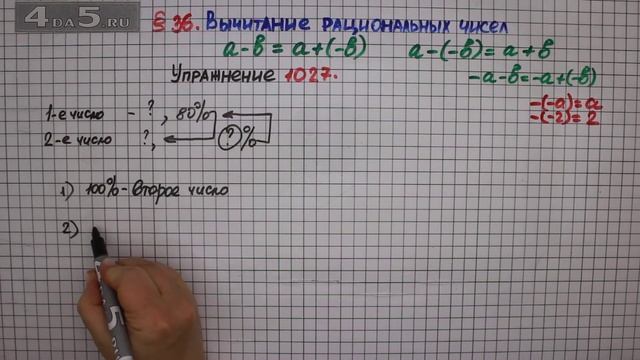 4DA5.RU
§ 36. Вычитание рациональных чисел
a-b = a+(-b) a-(-b) = a + b
Упражнение 1027. -a-b=-a+(-b)
-(-a)=a
-(-2)=2
1-е число - ?, 80%
2-е число ?, ?%
1) 100% - второе число
2)